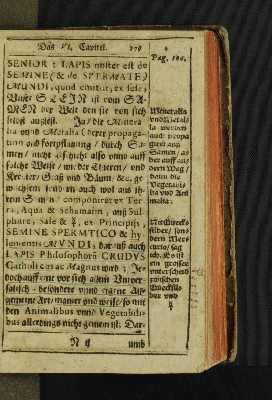 Das VI. Capitel. 179
SENIOR: LAPIS noster est de
SEMINE (& de SPERMATE)
MUNDI, quod emitut, ex se/
Unser STEIN ist vom SA-
MEN der Welt den sie von sich
selbst außlest. Ja/ die Minera-
lia vnnd Metalla (derer propaga-
tion und fortpflantzung / durch Sa-
men / nicht
solche Weise / wie der Thieren / und
Kreuter/Graß vnd Bäum/ &c. ge-
auch wol auß ih-
rem componirt) ex Ter-
ra, Aqua & Schamaim, auß Sul-
phure, Sale & ☿, ex Principiis,
SEMINE SPERMTICO & hy-
MUNDI, darauß auch
LAPIS Philosophorū CRUDUS
Catholicus ac Magnus wird;
doch auff eine vor sich allein Univer-
salisch - besondere vnnd eigene All-
gemeine Art/ manier vnd weise/ so mit
den Animalibus vnnd Vegetabili-
bus allerdings nicht gemein ist; Dar-
N ij umb
Pag. 104.
Mineralia
vnd Metals
la werden
auch propa
girt auß
Samen/ as
ber auff an-
dern Weg/
denn die
Vegetabi-
lia vnd Ani
malia;
silber/ son-
dern Mer-
curio/ sag
ich. Es ist
ein grosser
unterscheid
zwischen
Quecksil-
ber vnd
☿